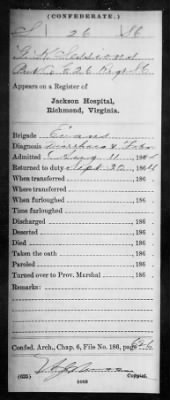 (CONFEDERATE.)
S 26
Appears on a Register of
Jackson Hospital,
Richmond, Virginia.
Brigade Evans
Diagnosis
Admitted Aug 11 186
Returned to duty Sept 30 186
When transferred 186 .
Where transferred 186 .
When furloughed 186 .
Time furloughed
Discharged 186 .
Deserted 186 .
Died 186 .
Taken the oath 186 .
Paroled 186 .
Turned over to Prov. Marshal 186 .
Remarks:
Confed. Arch., Chap. 6, File No. 186, page 626
(635) Copyist.